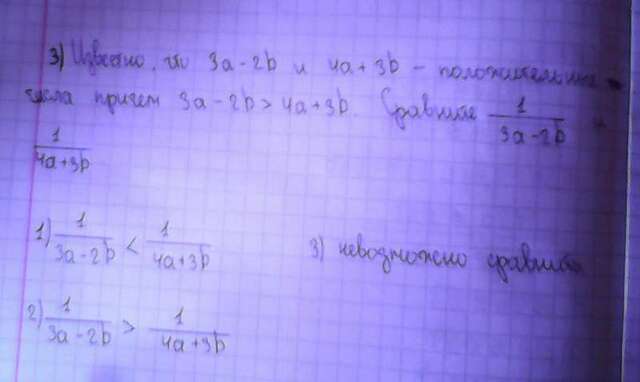 3) Известно, что 3a-2b и 4a+3b - положительные
числа причем 3a-2b>4a+3b. Сравните 1/(3a-2b) и
1/(4a+3b)
1) 1/(3a-2b) < 1/(4a+3b)
3) невозможно сравнить
2) 1/(3a-2b) > 1/(4a+3b)